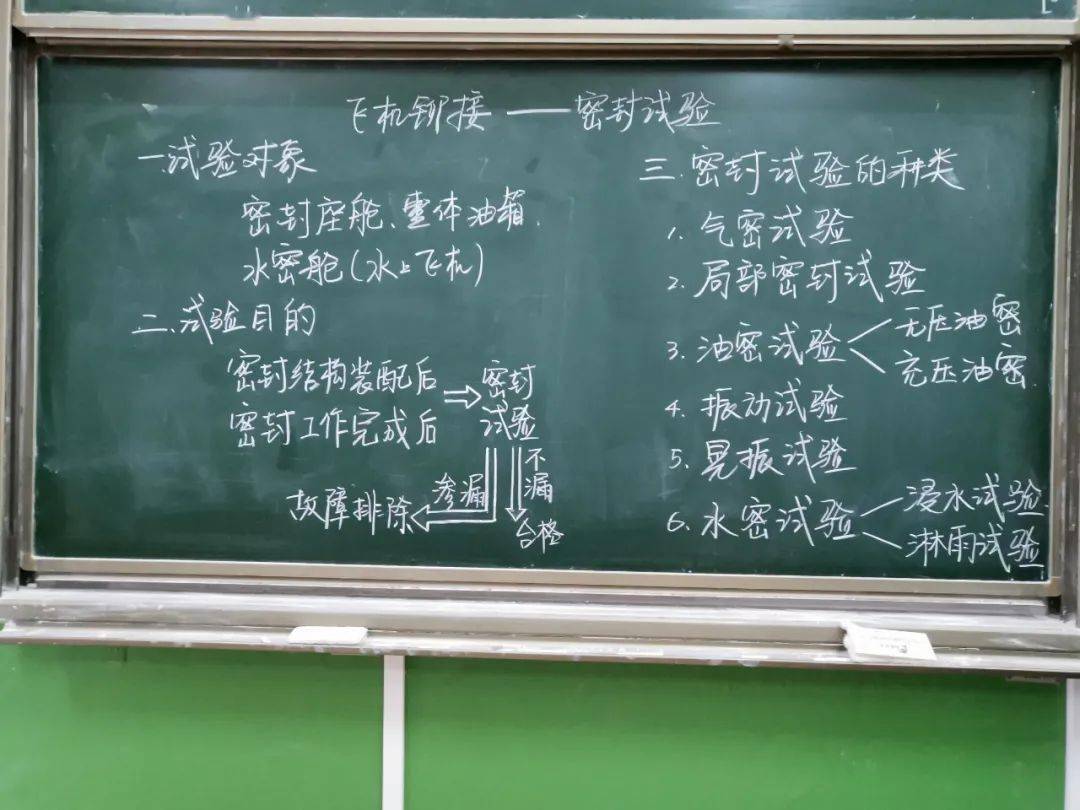 飞机铆接——密封试验
一.试验对象
密封座舱、整体油箱、
水密舱(水上飞机)
二.试验目的
密封结构装配后
密封工作完成后
密封
试验
渗漏
不漏
故障排除
合格
三.密封试验的种类
1. 气密试验
2. 局部密封试验
3. 油密试验
无压油密
充压油密
4. 振动试验
5. 晃振试验
6. 水密试验
浸水试验
淋雨试验